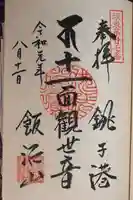 奉拝
銚子港
十一面観世音
令和元年
八月十一日
飯沼山